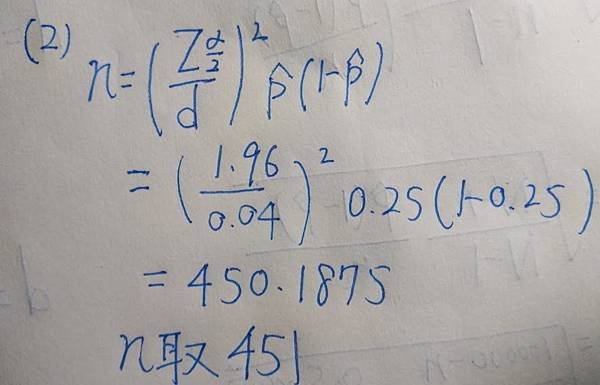 (2) n=(Zα/2/d)² p̂(1-p̂)
=(1.96/0.04)² 0.25(1-0.25)
=450.1875
n取451